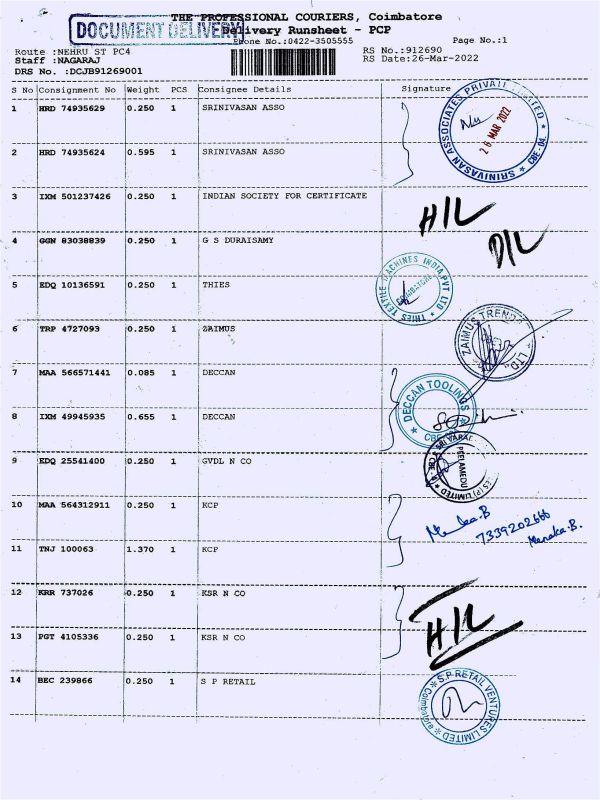 THE PROFESSIONAL COURIERS, Coimbatore
DOCUMENT DELIVERY
Delivery Runsheet - PCP
Phone No.:0422-3505555
Page No.:1
Route :NEHRU ST PC4
RS No.:912690
Staff :NAGARAJ
RS Date:26-Mar-2022
DRS No. :DCJB91269001
S No Consignment No Weight PCS Consignee Details Signature
1 HRD 74935629 0.250 1 SRINIVASAN ASSO
SRINIVASAN ASSOCIATES PRIVATE LIMITED * CBE-04. *
26 MAR 2022
2 HRD 74935624 0.595 1 SRINIVASAN ASSO
3 IXM 501237426 0.250 1 INDIAN SOCIETY FOR CERTIFICATE
H/L
4 GGN 83038839 0.250 1 G S DURAISAMY
D/L
5 EDQ 10136591 0.250 1 THIES
THIES TEXTILE MACHINES INDIA PVT LTD
COIMBATORE
6 TRP 4727093 0.250 1 ZAIMUS
ZAIMUS TRENDZ LTD.,
7 MAA 566571441 0.085 1 DECCAN
DECCAN TOOLINGS
8 IXM 49945935 0.655 1 DECCAN
9 EDQ 25541400 0.250 1 GVDL N CO
PEELAMEDU
(P) LIMITED
10 MAA 564312911 0.250 1 KCP
7339202666
Menaka.B.
11 TNJ 100063 1.370 1 KCP
12 KRR 737026 0.250 1 KSR N CO
H/L
13 PGT 4105336 0.250 1 KSR N CO
14 BEC 239866 0.250 1 S P RETAIL
S.P RETAIL VENTURES LIMITED